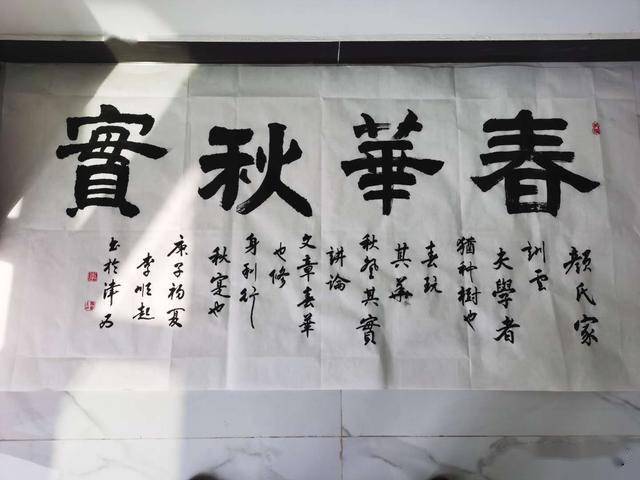 春華秋實
顏氏家
訓雲
夫學者
猶种樹也
春玩
其華
秋登其實
講論
文章春華
也修
身利行
秋寔也
庚子初夏
李順起
书於津